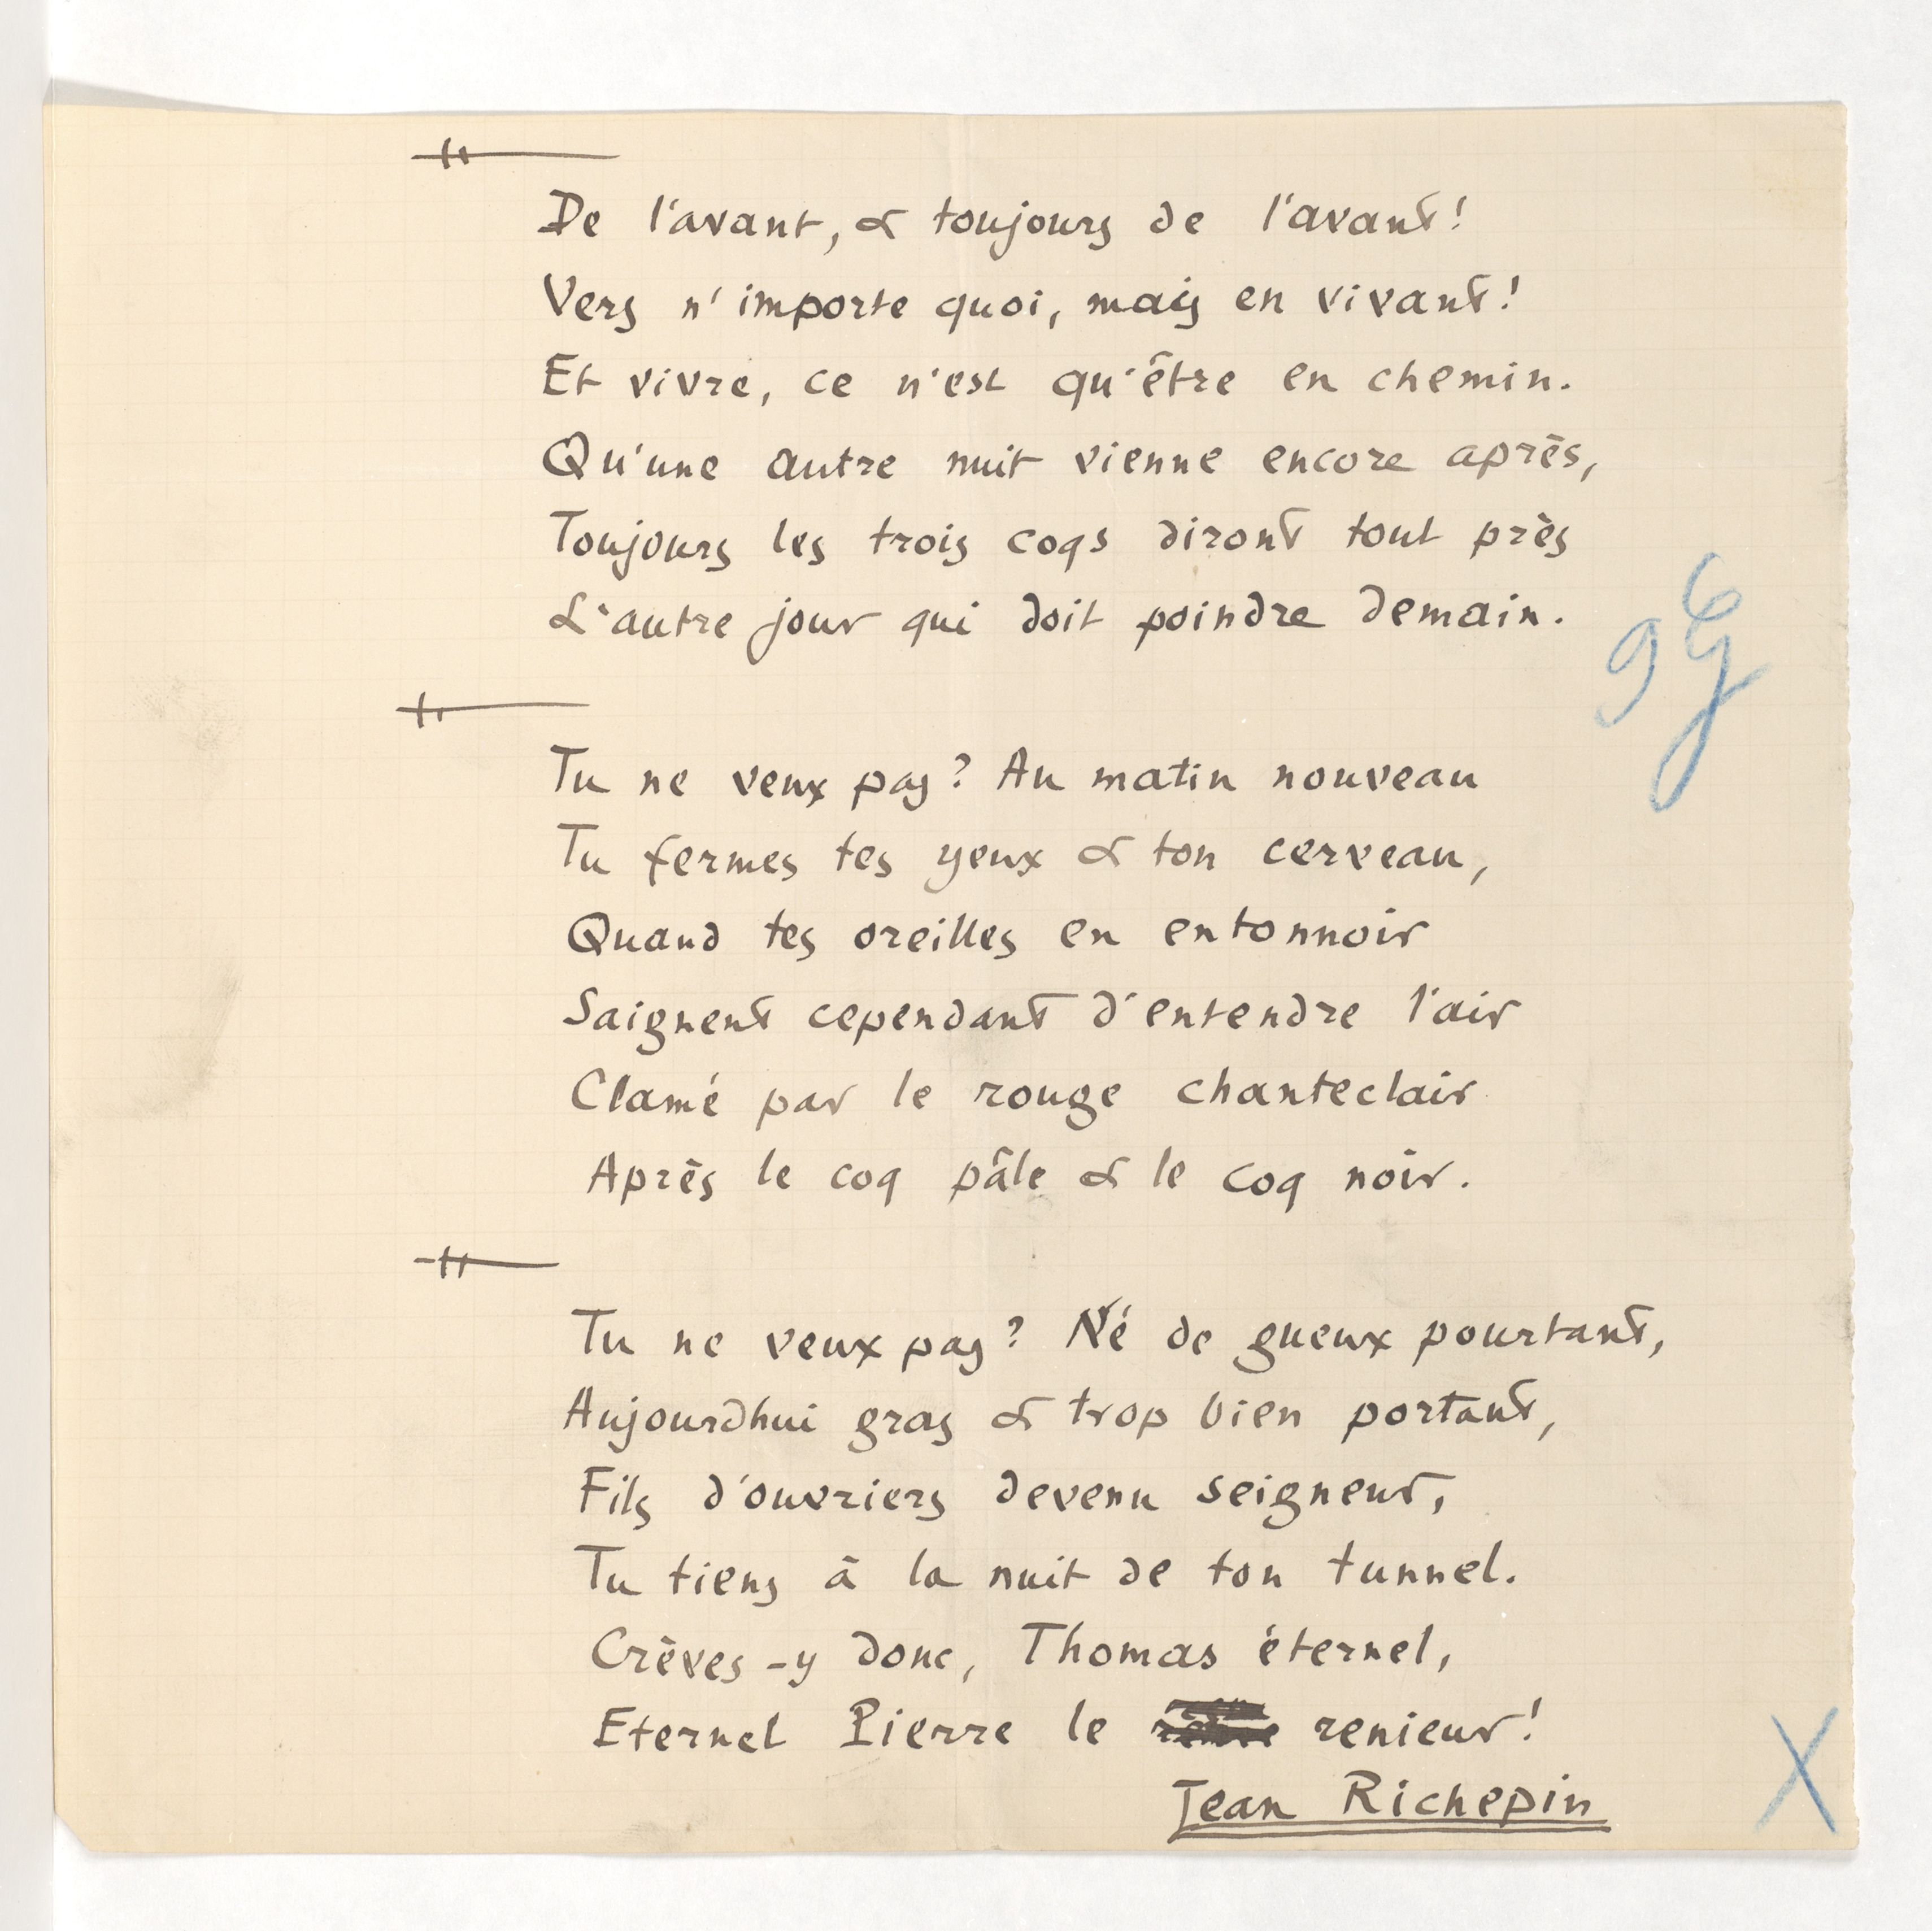 De l'avant, & toujours de l'avant!
Vers n'importe quoi, mais en vivant!
Et vivre, ce n'est qu'être en chemin.
Qu'une autre nuit vienne encore après,
Toujours les trois coqs diront tout près
L'autre jour qui doit poindre demain.
Tu ne veux pas? Au matin nouveau
Tu fermes tes yeux & ton cerveau,
Quand tes oreilles en entonnoir
Saignent cependant d'entendre l'air
Clamé par le rouge chanteclair
Après le coq pâle & le coq noir.
Tu ne veux pas? Né de gueux pourtant,
Aujourdhui gras & trop bien portant,
Fils d'ouvriers devenu seigneur,
Tu tiens à la nuit de ton tunnel.
Crèves-y donc, Thomas éternel,
Eternel Pierre le renieur!
Jean Richepin
X